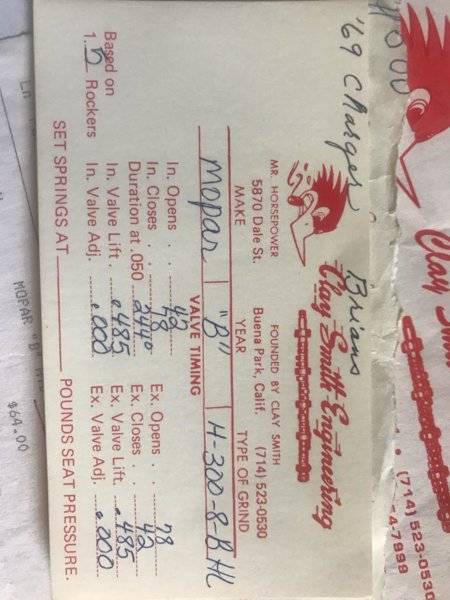 Clay
(714) 523-0530
4-7999
'69 Charger Brians
Clay Smith Engineering
MR. HORSEPOWER FOUNDED BY CLAY SMITH
5870 Dale St. Buena Park, Calif. (714) 523-0530
MAKE YEAR TYPE OF GRIND
Mopar "B" H-300-8-BHL
VALVE TIMING
In. Opens . . 42 Ex. Opens . . 78
In. Closes . . 78 Ex. Closes . . 42
Duration at .050 244°
Based on In. Valve Lift .485 Ex. Valve Lift .485
1.5 Rockers In. Valve Adj. .000 Ex. Valve Adj. .000
SET SPRINGS AT POUNDS SEAT PRESSURE.
MOPAR $64.00